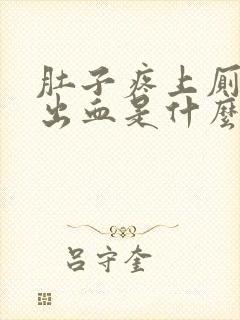 肚子疼上厕
出血是什麼
吕守奎